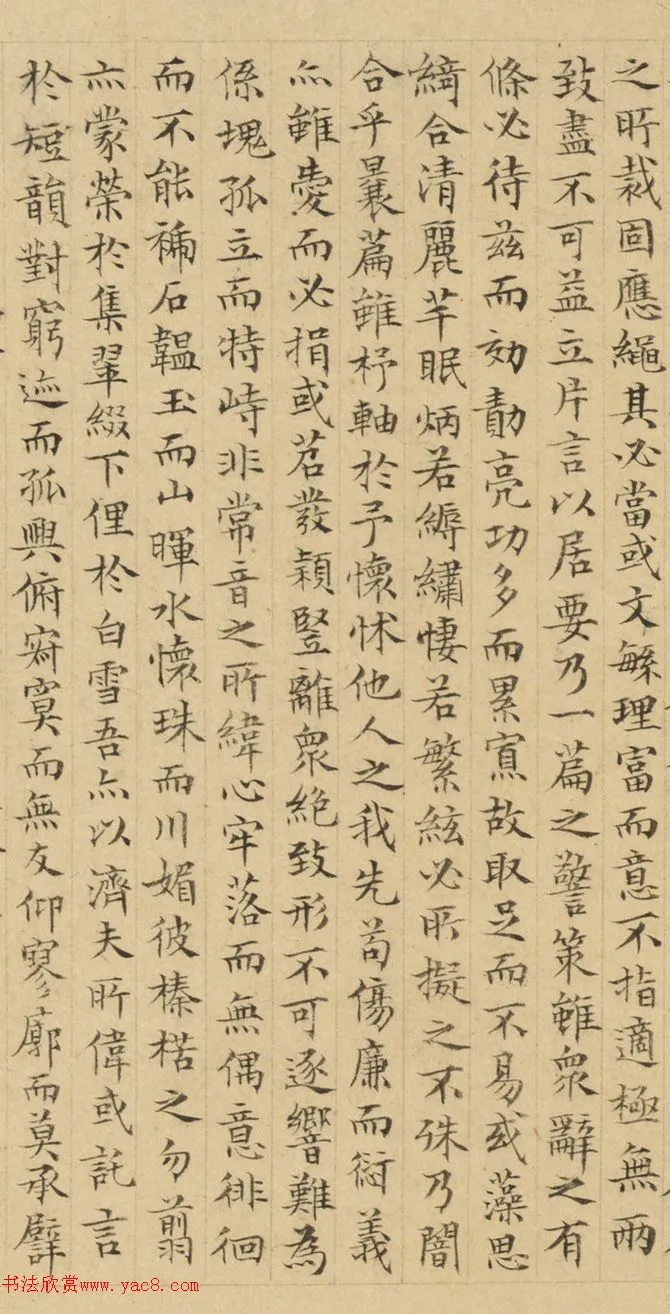 之所裁固應繩其必當或文繁理富而意不指適極無兩
致盡不可益立片言以居要乃一篇之警策雖衆辭之有
條必待茲而効勣亮功多而累寡故取足而不易或藻思
綺合清麗芊眠炳若縟繡悽若繁絃必所擬之不殊乃闇
合乎曩篇雖杼軸於予懷怵他人之我先苟傷廉而愆義
亦雖愛而必捐或苕發穎豎離衆絶致形不可逐響難為
係塊孤立而特峙非常音之所緯心牢落而無偶意徘徊
而不能褫石韞玉而山暉水懷珠而川媚彼榛楛之勿翦
亦蒙榮於集翠綴下俚於白雪吾亦以濟夫所偉或託言
於短韻對窮迹而孤興俯寂寞而無友仰寥廓而莫承譬
书法欣赏www.yac8.com